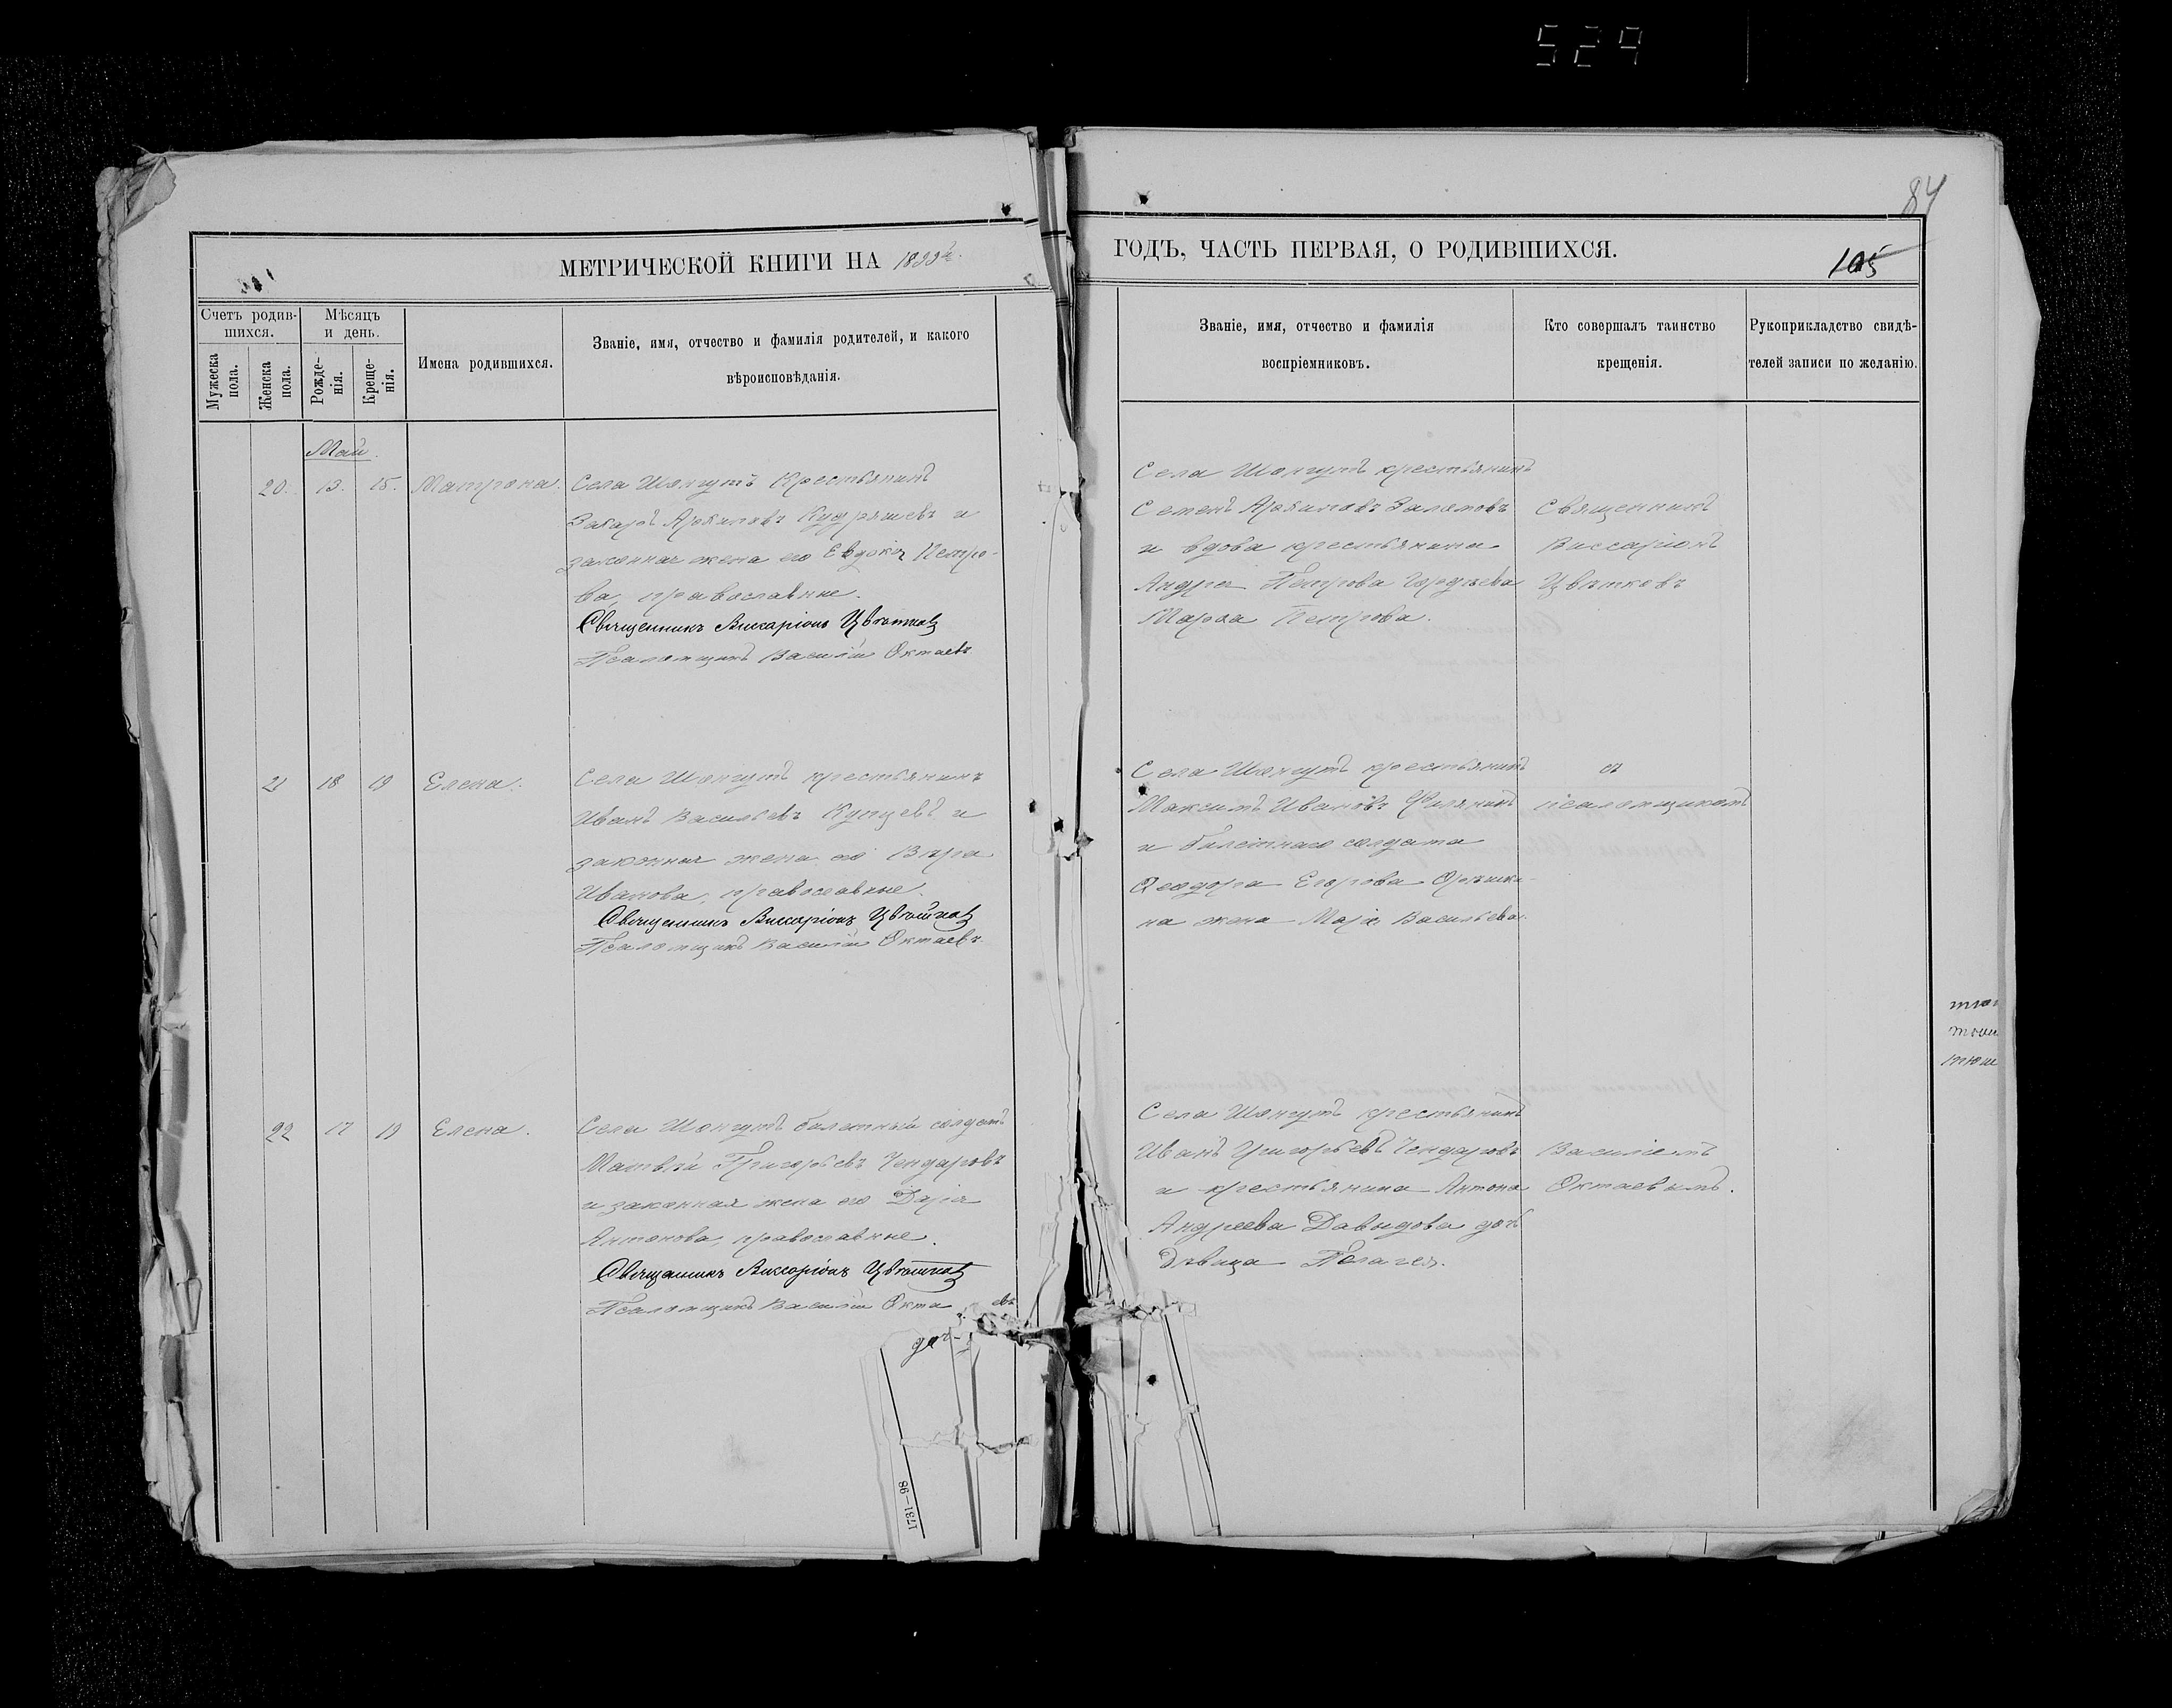 529
84
МЕТРИЧЕСКОЙ КНИГИ НА 1899й
ГОДЪ, ЧАСТЬ ПЕРВАЯ, О РОДИВШИХСЯ.
105
Счетъ родив-
шихся.
Мужеска
пола.
Женска
пола.
Мѣсяцъ
и день.
Рожде-
нія.
Креще-
нія.
Имена родившихся.
Званіе, имя, отчество и фамилія родителей, и какого
вѣроисповѣданія.
Званіе, имя, отчество и фамилія
воспріемниковъ.
Кто совершалъ таинство
крещенія.
Рукоприкладство свидѣ-
телей записи по желанію.
Май.
20. 13. 15. Матрона.
Села Шонгутъ Крестьянинъ
Захаръ Кудряшевъ и
законная жена его Евдокія Петро-
ва, православные.
Священникъ Виссаріонъ Цвѣтков
Псаломщикъ Василій Октаевъ.
Села Шонгутъ крестьянинъ
Семенъ
и вдова крестьянина
Андрея Петрова Гордѣева
Марѳа Петрова.
Священникъ
Виссаріонъ
Цвѣтковъ
21 18 19 Елена.
Села Шонгутъ крестьянинъ
Иванъ Васильевъ Купцевъ и
законная жена его Вѣра
Иванова, православные.
Священникъ Виссаріонъ Цвѣтков
Псаломщикъ Василій Октаевъ.
Села Шонгутъ крестьянинъ
Максимъ Ивановъ Филянинъ
и билетнаго солдата
Ѳеодора Егорова Орѣшки-
на жена Марія Васильева.
съ
псаломщикомъ
22 17 19 Елена.
Села Шонгутъ билетный солдатъ
Матвѣй Григорьевъ Чендаровъ
и законная жена его Дарія
Антонова, православные.
Священникъ Виссаріонъ Цвѣтков
Псаломщикъ Василій Октаевъ
Села Шонгутъ крестьянинъ
Иванъ Григорьевъ Чендаровъ
и крестьянина Антона
Андреева Давыдова дочь
дѣвица Пелагея.
Василіемъ
Октаевымъ.
1731—98